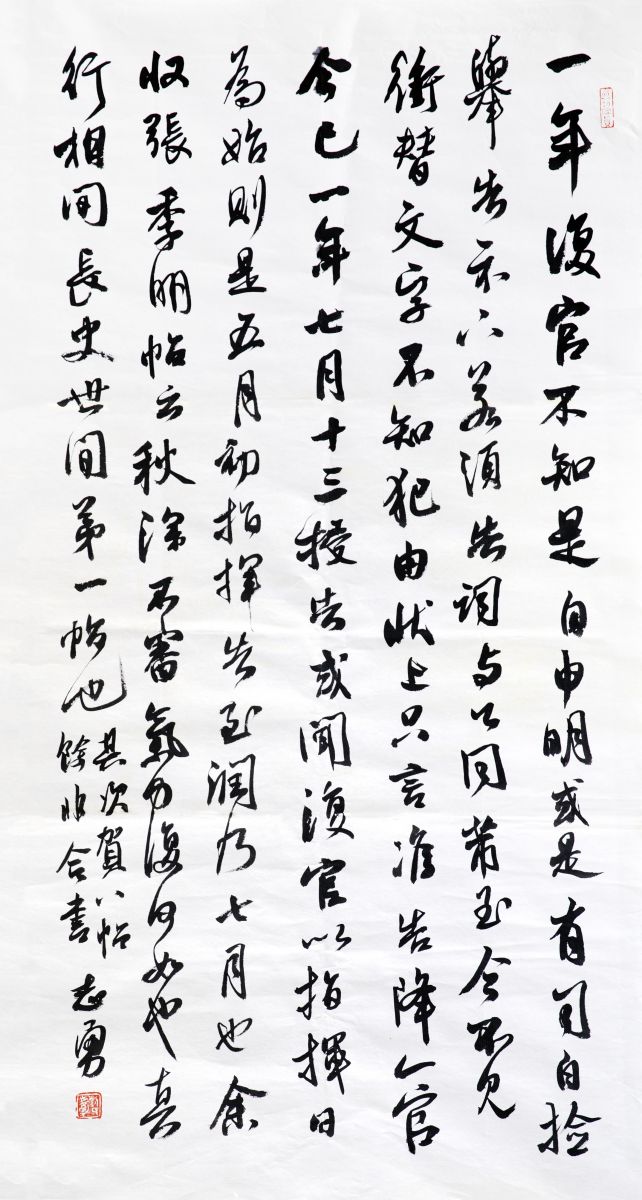 一年復官不知是自申明或是有司自捡
舉告示下若須告詞与公同带至今不见
衝替文字不知犯由状上只言准告降一官
今已一年七月十三授告或聞復官以指揮日
為始则是五月初指揮告至潤乃七月也余
收張季明帖云秋深不審氣力復何如也真
行相间長史世间第一帖也
其次賀八帖
餘非合書
志勇